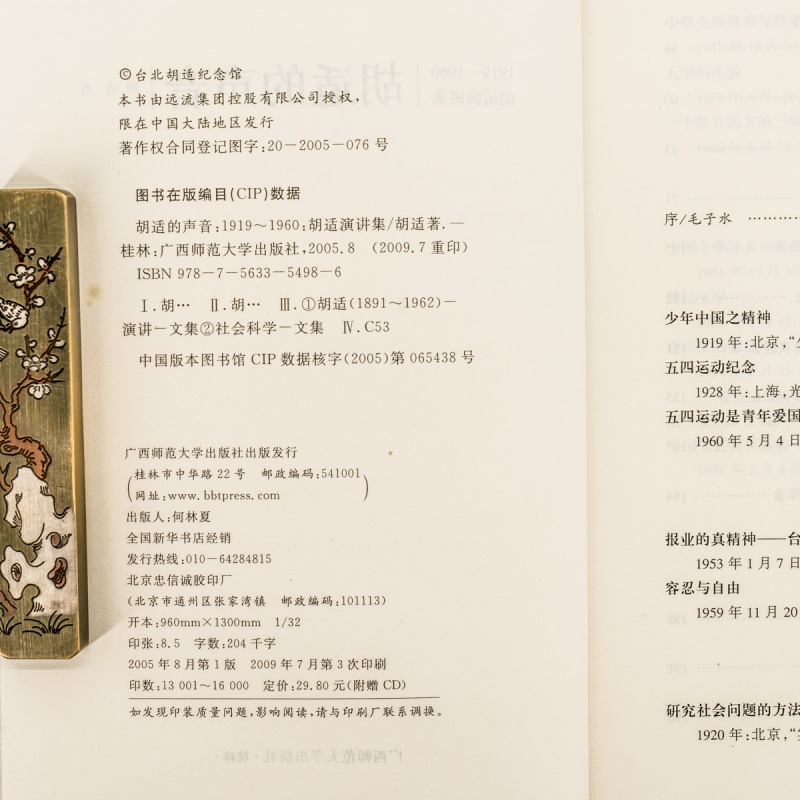 ©台北胡适纪念馆
本书由远流集团控股有限公司授权,
限在中国大陆地区发行
著作权合同登记图字:20-2005-076 号
图书在版编目(CIP)数据
胡适的声音:1919～1960:胡适演讲集/胡适著.—
桂林:广西师范大学出版社,2005.8 (2009.7 重印)
ISBN 978-7-5633-5498-6
Ⅰ.胡… Ⅱ.胡… Ⅲ.①胡适(1891～1962)-
演讲-文集②社会科学-文集 Ⅳ.C53
中国版本图书馆 CIP 数据核字(2005)第 065438 号
广西师范大学出版社出版发行
(桂林市中华路 22 号 邮政编码:541001
网址:www.bbtpress.com)
出版人:何林夏
全国新华书店经销
发行热线:010-64284815
北京忠信诚胶印厂
(北京市通州区张家湾镇 邮政编码:101113)
开本:960mm×1300mm 1/32
印张:8.5 字数:204 千字
2005 年 8 月第 1 版 2009 年 7 月第 3 次印刷
印数:13 001～16 000 定价:29.80 元(附赠 CD)
如发现印装质量问题,影响阅读,请与印刷厂联系调换。
序/毛子水 ………
少年中国之精神
1919 年:北京,“
五四运动纪念
1928 年:上海,光
五四运动是青年爱国
1960 年 5 月 4 日
报业的真精神——台
1953 年 1 月 7 日
容忍与自由
1959 年 11 月 20
研究社会问题的方法
1920 年:北京,“